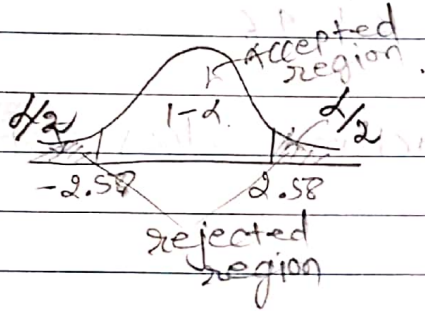 Accepted
region
α/2 1-α. α/2
-2.58 2.58
rejected
region